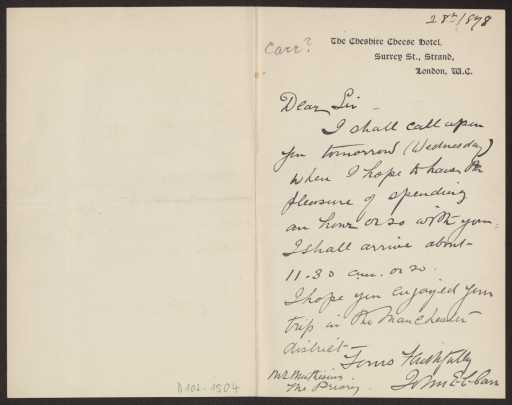 28th/1898
Carr?
The Cheshire Cheese Hotel,
Surrey St., Strand,
London, W.C.
Dear Sir –
I shall call upon
you tomorrow (Wednesday)
when I hope to have the
pleasure of spending
an hour or so with you.
I shall arrive about
11.30 a.m. or so.
I hope you enjoyed your
trip in the Manchester
district –
Yours Faithfully
John
Mr
The Priory
D102-1504